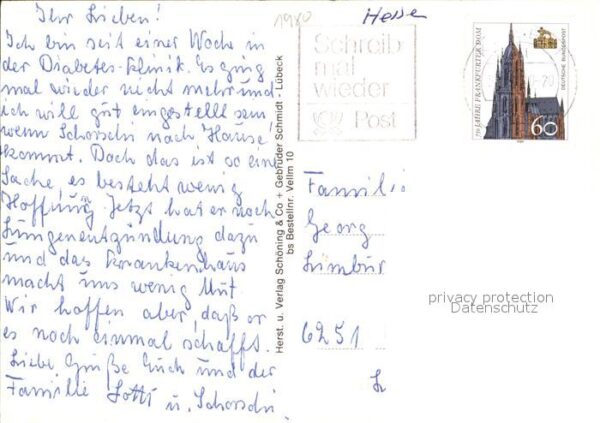 Ihr Lieben!
Ich bin seit einer Woche in
der Diabetes-Klinik. Es ging
mal wieder nicht mehr und
ich will gut eingestellt sein
wenn Schorschi nach Hause
kommt. Doch das ist so eine
Sache, es besteht wenig
Hoffnung. Jetzt hat er noch
Lungenentzündung dazu
und das Krankenhaus
macht uns wenig Mut.
Wir hoffen aber, daß er
es noch einmal schafft.
Liebe Grüße Euch und der
Familie Lotti u. Schorschi
Herst. u. Verlag Schöning & Co + Gebrüder Schmidt - Lübeck
bs Bestellnr. Vellm 10
Hesse
Schreib
mal
wieder
Post
750 JAHRE FRANKFURTER DOM
DEUTSCHE BUNDESPOST
60
Famili
Georg
Limbur
6251
L
privacy protection
Datenschutz